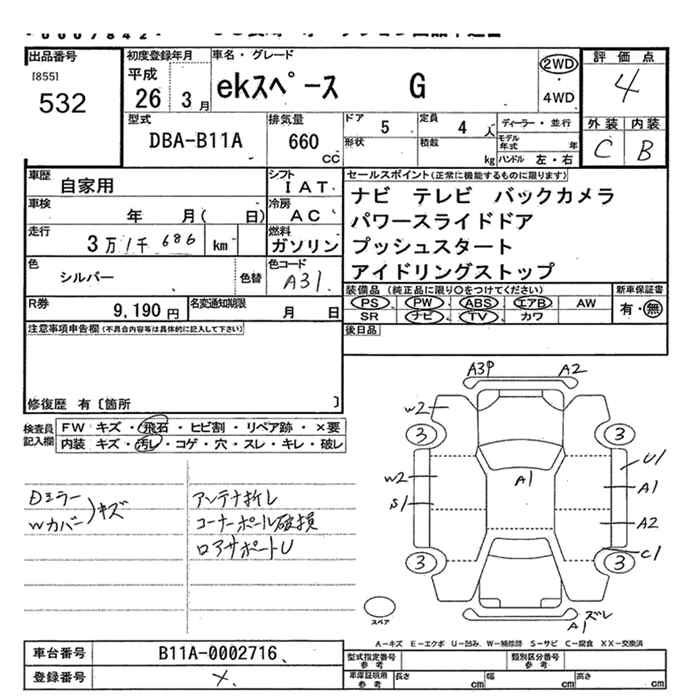 出品番号
[855]
532
初度登録年月
平成
26 3月
車名・グレード
ekスペース G
2WD
4WD
評価点
4
外装 内装
C B
型式
DBA-B11A
排気量
660
CC
ドア
5
形状
定員
4 人
積載
kg
ディーラー・並行
モデル年式 年
ハンドル 左・右
車歴
自家用
シフト
IAT
車検
年 月( 日)
冷房
AC
走行
3万1千686 km
燃料
ガソリン
色
シルバー
色替
色コード
A31
R券
9,190円
名変通知期限
月 日
セールスポイント(正常に機能するものに限ります)
ナビ テレビ バックカメラ
パワースライドドア
プッシュスタート
アイドリングストップ
装備品(純正品に限り○をつけてください)
PS PW ABS エアB AW
SR ナビ TV カワ
新車保証書
有・無
後日品
注意事項申告欄(不具合内容等は具体的に記入して下さい)
修復歴 有〔箇所 〕
検査員記入欄
FW キズ・飛石・ヒビ割・リペア跡・×要
内装 キズ・汚レ・コゲ・穴・スレ・キレ・破レ
Dミラー
Wカバー)キズ
アンテナ折レ
コーナーポール破損
ロアサポートU
A3P A2
W2
3 3
U1
W2 A1 A1
S1
A2
C1
3 3
ズレ
A1
スペア
A-キズ E-エクボ U-凹み W-補修跡 S-サビ C-腐食 XX-交換済
車台番号
B11A-0002716
登録番号
型式指定番号 参考
類別区分番号 参考
車庫証明用 参考
長さ cm
幅 cm
高さ cm